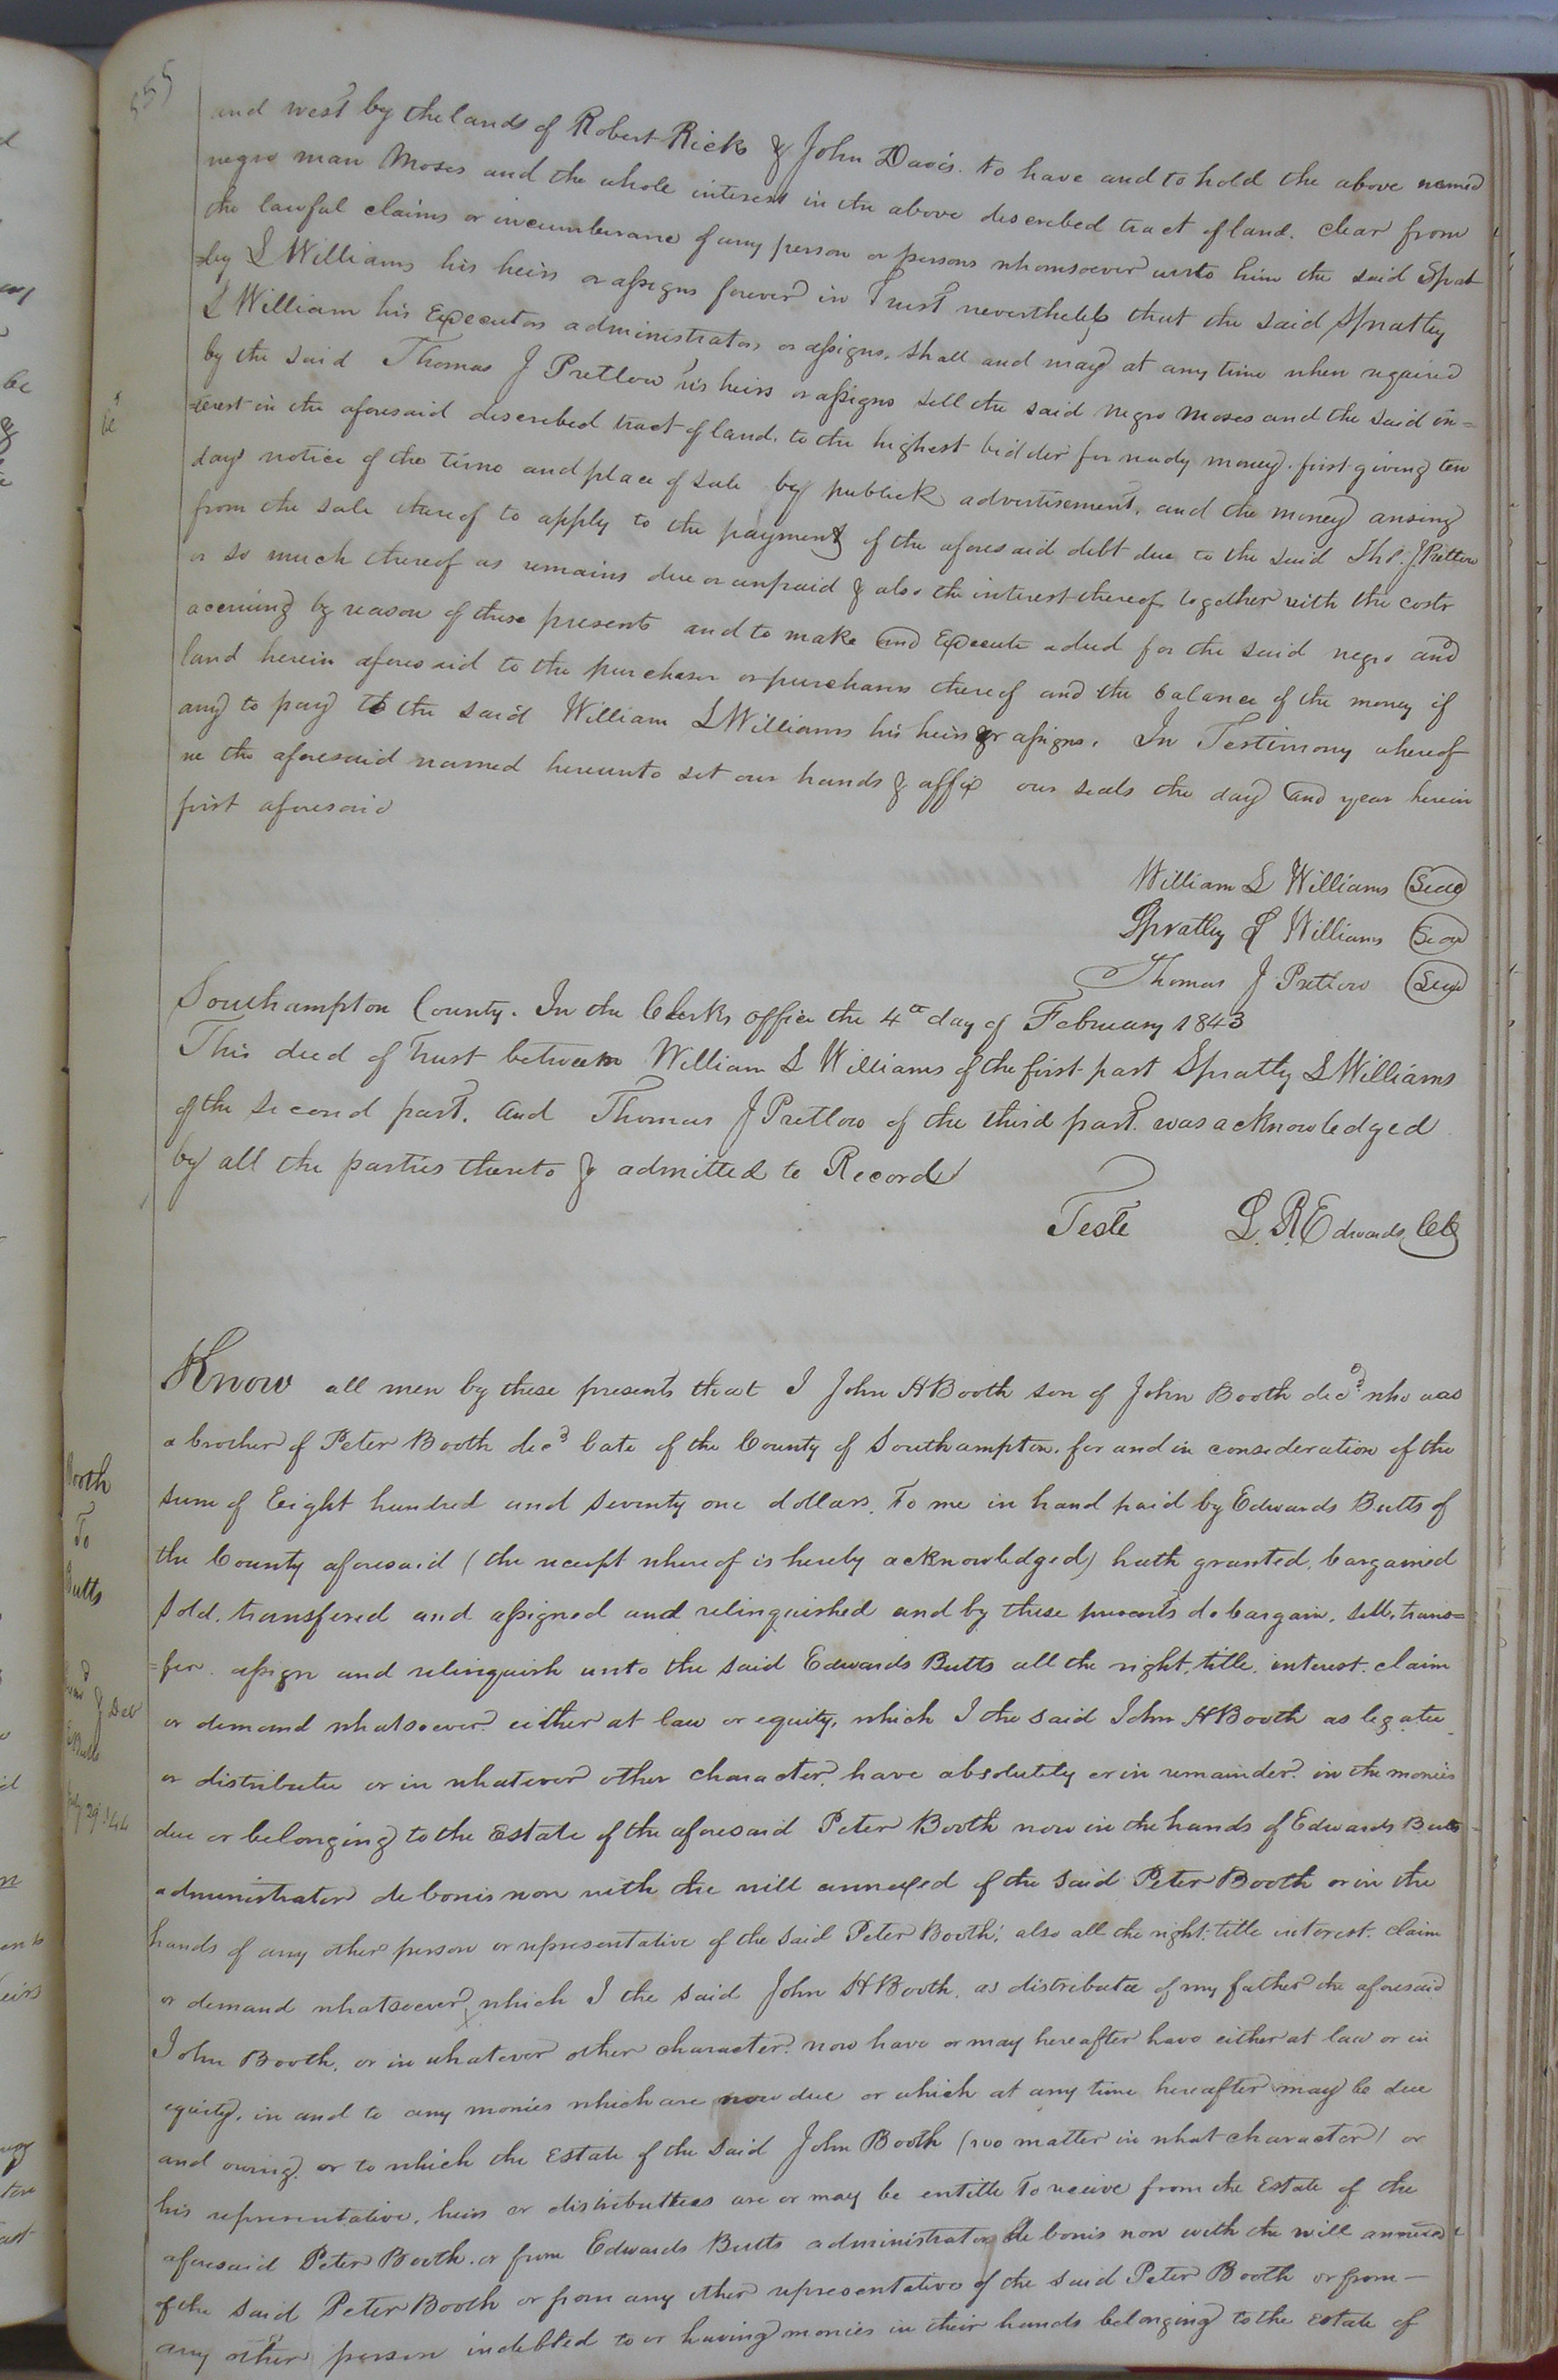 555
and west by the lands of Robert Ricks & John Davis. to have and to hold the above named
negro man Moses and the whole interest in the above described tract of land. clear from
the lawful claims or incumberance of any person or persons whomsoever unto him the said Sprat
=ley L Williams his heirs or assigns forever in Trust nevertheless that the said Spratley
L William his Executors administrators or assigns, shall and may at any time when reqaired
by the said Thomas J Pretlow his heirs or assigns sell the said negro Moses and the said in=
=terest in the aforesaid described tract of land. to the highest bidder for ready money. first giving ten
days notice of the time and place of sale by publick advertisement, and the money arising
from the sale thereof to apply to the payment of the aforesaid debt due to the said Tho. J Pretlow
or so much thereof as remains due or unpaid & also the interest thereof together with the costs
accruing by reason of these presents and to make and Execute a deed for the said negro and
land herein aforesaid to the purchaser or purchasers thereof and the balance of the money if
any to pay to the said William L Williams his heirs or assigns. In Testimony whereof
we the aforesaid named hereunto set our hands & affix our seals the day and year herein
first aforesaid
William L Williams Seal
Spratley L Williams Seal
Thomas J Pretlow Seal
Southampton County. In the Clerks office the 4th day of February 1843
This deed of Trust between William L Williams of the first part Spratly L Williams
of the second part. and Thomas J Pretlow of the third part was acknowledged
by all the parties thereto & admitted to Record
Teste L. R. Edwards Clk
Booth
To
Butts
Know all men by these presents that I John H Booth son of John Booth decd who was
a brother of Peter Booth decd late of the County of Southampton. for and in consideration of the
sum of Eight hundred and seventy one dollars. To me in hand paid by Edwards Butts of
the County aforesaid (the receipt whereof is hereby acknowledged) hath granted, bargained
sold. transfered and assigned and relinquished and by these presents do bargain, sell, trans=
=fer. assign and relinquish unto the said Edwards Butts all the right, title, interest. claim
or demand whatsoever either at law or equity, which I the said John H Booth as legatee
or distributee or in whatever other character, have absolutely or in remainder in the monies
due or belonging to the Estate of the aforesaid Peter Booth now in the hands of Edwards Butts
administrator de bonis non with the will annexed of the said Peter Booth or in the
hands of any other person or representative of the said Peter Booth; also all the right. title interest. claim
or demand whatsoever which I the said John H Booth. as distributee of my father the aforesaid
John Booth, or in whatever other character now have or may hereafter have either at law or in
equity, in and to any monies which are now due or which at any time hereafter may be due
and owing. or to which the Estate of the said John Booth (no matter in what character) or
his representative, heirs or distributees are or may be entitle To receive from the Estate of the
aforesaid Peter Booth. or from Edwards Butts administrator de bonis non with the will annexed
of the said Peter Booth or from any other representative of the said Peter Booth or from
any other person indebted to or having monies in their hands belonging to the estate of